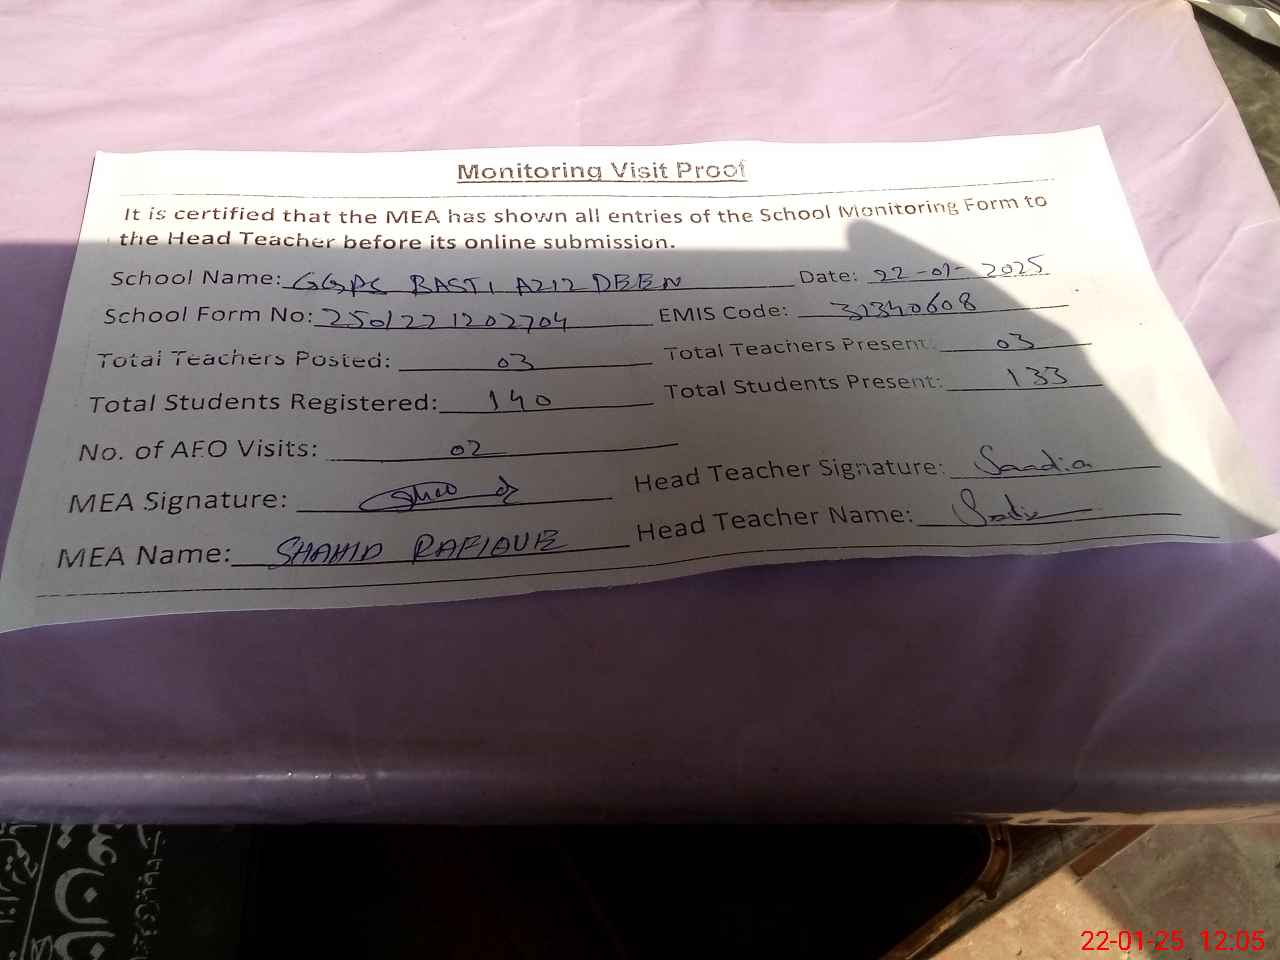 Monitoring Visit Proof
It is certified that the MEA has shown all entries of the School Monitoring Form to
the Head Teacher before its online submission.
School Name: GGPS BASTI AZIZ DEEN Date: 22-01-2025
School Form No: 2501221202704 EMIS Code: 31340608
Total Teachers Posted: 03 Total Teachers Present: 03
Total Students Registered: 140 Total Students Present: 133
No. of AEO Visits: 02
MEA Signature: Head Teacher Signature: Saadia
MEA Name: SHAHID RAFIQUE Head Teacher Name:
22-01-25 12:05